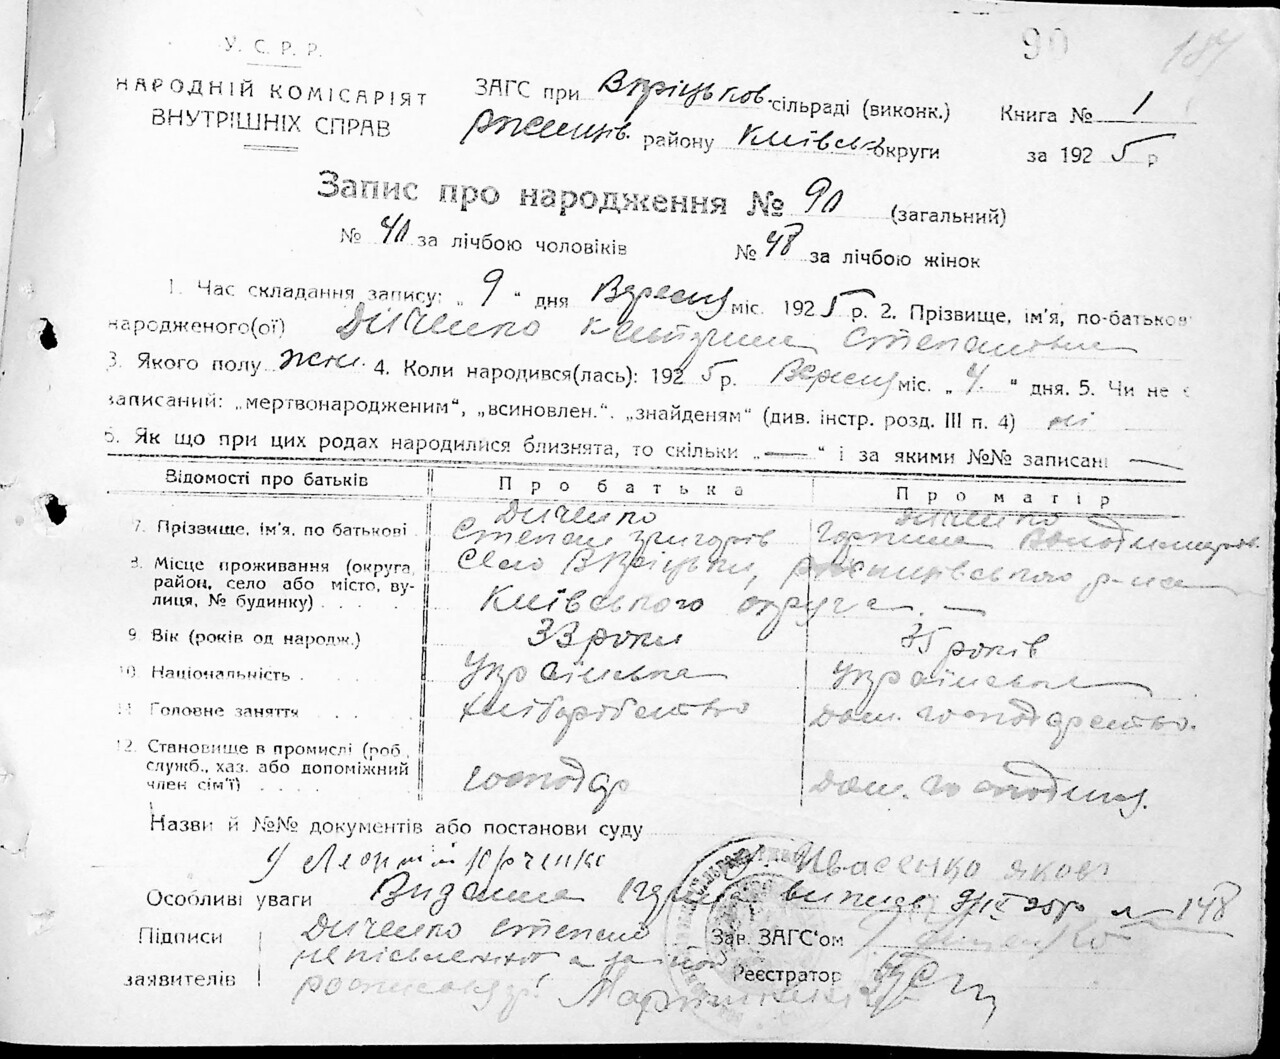 90 187
У. С. Р. Р.
НАРОДНІЙ КОМІСАРІЯТ
ВНУТРІШНІХ СПРАВ
ЗАГС при сільраді (виконк.) Книга № 1
району Київськ округи за 1925 р
Запис про народження № 90 (загальний)
№ за лічбою чоловіків № 48 за лічбою жінок
1. Час складання запису: „ 9 “ дня Вересня міс. 1925 р. 2. Прізвище, ім'я, по-батьков
народженого(ої) Дитченко Катерина Степановна
3. Якого полу жін. 4. Коли народився(лась): 1925 р. Вересня міс. „ 4 “ дня. 5. Чи не є
записаний: „мертвонародженим“, „всиновлен.“. „знайденям“ (див. інстр. розд. III п. 4) ні
6. Як що при цих родах народилися близнята, то скільки „—“ і за якими №№ записані —
Відомості про батьків Про батька Про матір
7. Прізвище, ім'я, по батькові Дитченко Дитченко
Степан Григорів Горпина Володимиров.
8. Місце проживання (округа, Село
район, село або місто, ву-
лиця, № будинку) Київського округа. —
9. Вік (років од народж.) 33 роки 35 років
10. Національність Українська Українська
11. Головне заняття хліборобство дом. господарство.
12. Становище в промислі (роб.,
служб., хаз. або допоміжний
член сім'ї) господар дом. господиня.
Назви й №№ документів або постанови суду
Юрченко Ивасенко Яков
Особливі уваги Видана 9/IX 25 р № 148
Підписи Дитченко Степан Зав. ЗАГС'ом
заявителів Реєстратор